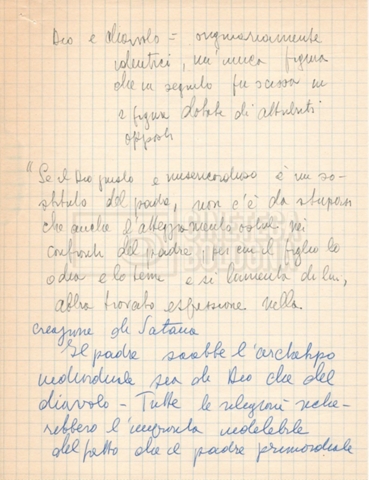 Dio e diavolo = originariamente
identici, un'unica figura
che in seguito fu scissa in
2 figure dotate di attributi
opposti
"Se il Dio giusto e misericordioso è un so-
stituto del padre, non c'è da stupirsi
che anche l'atteggiamento ostile nei
confronti del padre, per cui il figlio lo
odia e lo teme e si lamenta di lui,
abbia trovato espressione nella
creazione di Satana
Il padre sarebbe l'archetipo
individuale sia di Dio che del
diavolo - Tutte le religioni reche-
rebbero l'impronta indelebile
del fatto che il padre primordiale